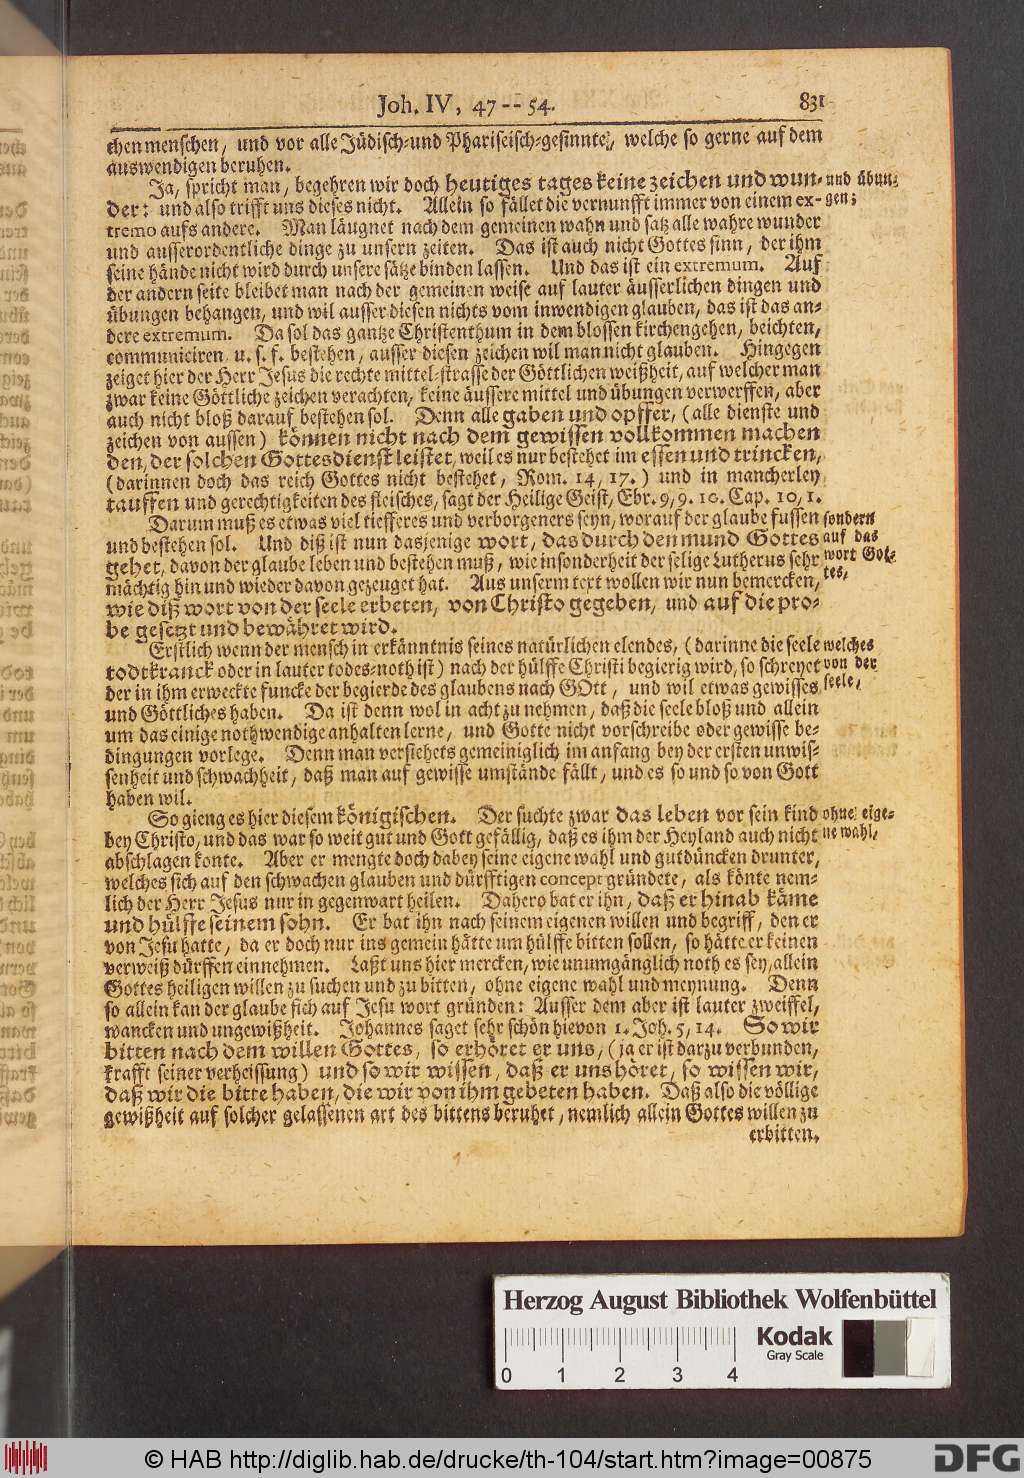 Joh. IV, 47 -- 54. 831
chen menschen, und vor alle Jüdisch-und Phariseisch-gesinnte, welche so gerne auf dem
auswendigen beruhen.
Ja, spricht man, begehren wir doch heutiges tages keine zeichen und wun- und übun-
der: und also trifft uns dieses nicht. Allein so fället die vernunfft immer von einem ex- gen;
tremo aufs andere. Man läugnet nach dem gemeinen wahn und satz alle wahre wunder
und ausserordentliche dinge zu unsern zeiten. Das ist auch nicht Gottes sinn, der ihm
seine hände nicht wird durch unsere sätze binden lassen. Und das ist ein extremum. Auf
der andern seite bleibet man nach der gemeinen weise auf lauter äusserlichen dingen und
übungen behangen, und wil ausser diesen nichts vom inwendigen glauben, das ist das an-
dere extremum. Da sol das gantze Christenthum in dem blossen kirchengehen, beichten,
communiciren u. s. f. bestehen, ausser diesen zeichen wil man nicht glauben. Hingegen
zeiget hier der Herr Jesus die rechte mittel-strasse der Göttlichen weißheit, auf welcher man
zwar keine Göttliche zeichen verachten, keine äussere mittel und übungen verwerffen, aber
auch nicht bloß darauf bestehen sol. Denn alle gaben und opffer, (alle dienste und
zeichen von aussen) können nicht nach dem gewissen vollkommen machen
den, der solchen Gottesdienst leistet, weil es nur bestehet im essen und trincken,
(darinnen doch das reich Gottes nicht bestehet, Rom. 14, 17.) und in mancherley
tauffen und gerechtigkeiten des fleisches, sagt der Heilige Geist, Ebr. 9, 9. 10. Cap. 10, 1.
Darum muß es etwas viel tiefferes und verborgeners seyn, worauf der glaube fussen sondern
und bestehen sol. Und diß ist nun dasjenige wort, das durch den mund Gottes auf das
gehet, davon der glaube leben und bestehen muß, wie insonderheit der selige Lutherus sehr wort Got-
mächtig hin und wieder davon gezeuget hat. Aus unserm text wollen wir nun bemercken, tes,
wie diß wort von der seele erbeten, von Christo gegeben, und auf die pro-
be gesetzt und bewähret wird.
Erstlich wenn der mensch in erkänntnis seines natürlichen elendes, (darinne die seele welches
todtkranck oder in lauter todes-noth ist) nach der hülffe Christi begierig wird, so schreyet von der
der in ihm erweckte funcke der begierde des glaubens nach GOtt, und wil etwas gewisses seele,
und Göttliches haben. Da ist denn wol in acht zu nehmen, daß die seele bloß und allein
um das einige nothwendige anhalten lerne, und Gotte nicht vorschreibe oder gewisse be-
dingungen vorlege. Denn man verstehets gemeiniglich im anfang bey der ersten unwis-
senheit und schwachheit, daß man auf gewisse umstände fällt, und es so und so von Gott
haben wil.
So gieng es hier diesem königischen. Der suchte zwar das leben vor sein kind ohne eige-
bey Christo, und das war so weit gut und Gott gefällig, daß es ihm der Heyland auch nicht ne wahl,
abschlagen konte. Aber er mengte doch dabey seine eigene wahl und gutdüncken drunter,
welches sich auf den schwachen glauben und dürfftigen concept gründete, als könte nem-
lich der Herr Jesus nur in gegenwart heilen. Dahero bat er ihn, daß er hinab käme
und hülffe seinem sohn. Er bat ihn nach seinem eigenen willen und begriff, den er
von Jesu hatte, da er doch nur ins gemein hätte um hülffe bitten sollen, so hätte er keinen
verweiß dürffen einnehmen. Laßt uns hier mercken, wie unumgänglich noth es sey, allein
Gottes heiligen willen zu suchen und zu bitten, ohne eigene wahl und meynung. Denn
so allein kan der glaube sich auf Jesu wort gründen: Ausser dem aber ist lauter zweiffel,
wancken und ungewißheit. Johannes saget sehr schön hievon 1. Joh. 5, 14. So wir
bitten nach dem willen Gottes, so erhöret er uns, (ja er ist darzu verbunden,
krafft seiner verheissung) und so wir wissen, daß er uns höret, so wissen wir,
daß wir die bitte haben, die wir von ihm gebeten haben. Daß also die völlige
gewißheit auf solcher gelassenen art des bittens beruhet, nemlich allein Gottes willen zu
erbitten.
Herzog August Bibliothek Wolfenbüttel
Kodak
Gray Scale
0 1 2 3 4
© HAB http://diglib.hab.de/drucke/th-104/start.htm?image=00875
DFG